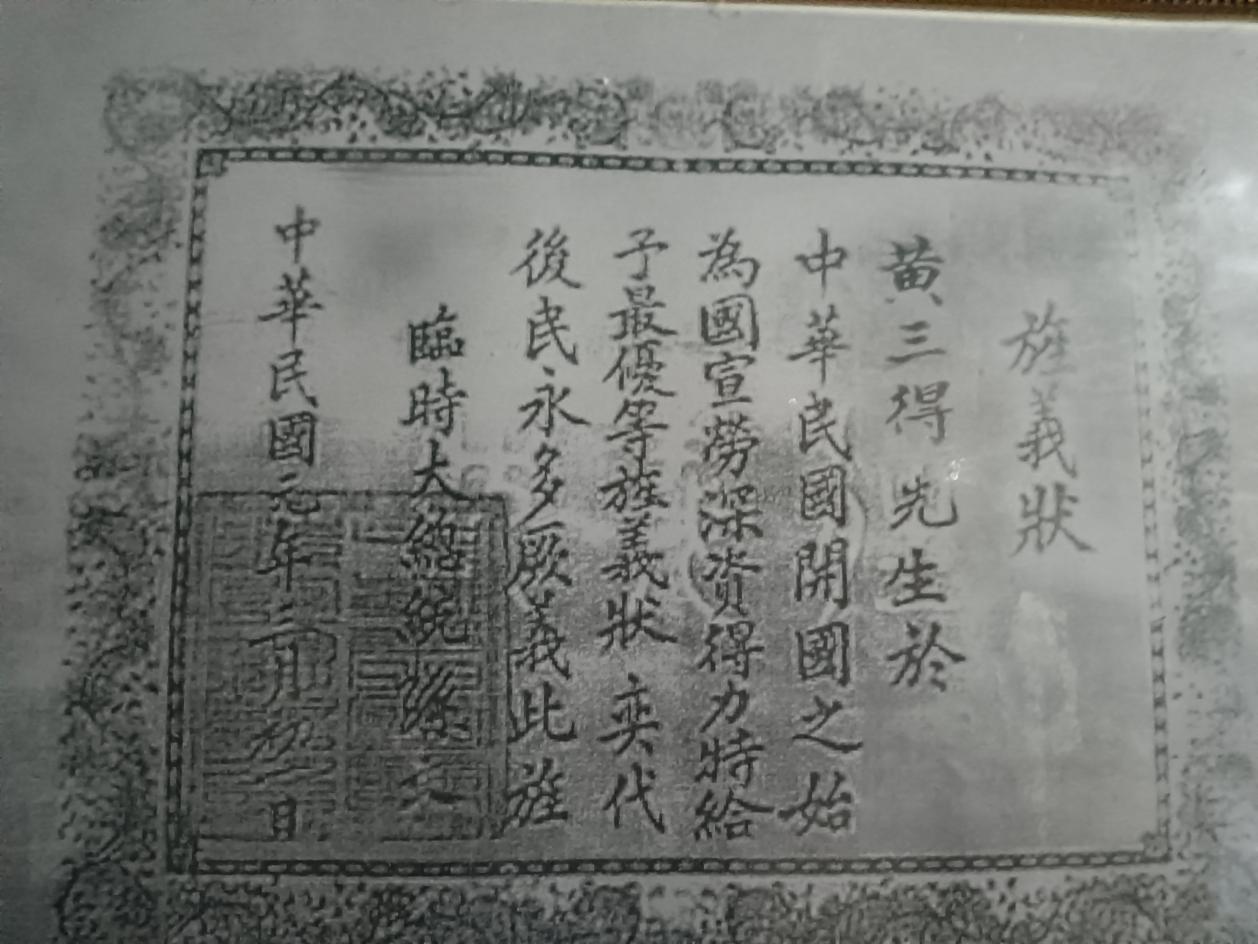 旌義狀
黃三得先生於
中華民國開國之始
為國宣勞深資得力特給
予最優等旌義狀 奕代
後民永多厥義此旌
臨時大總統孫文
中華民國元年三月 日